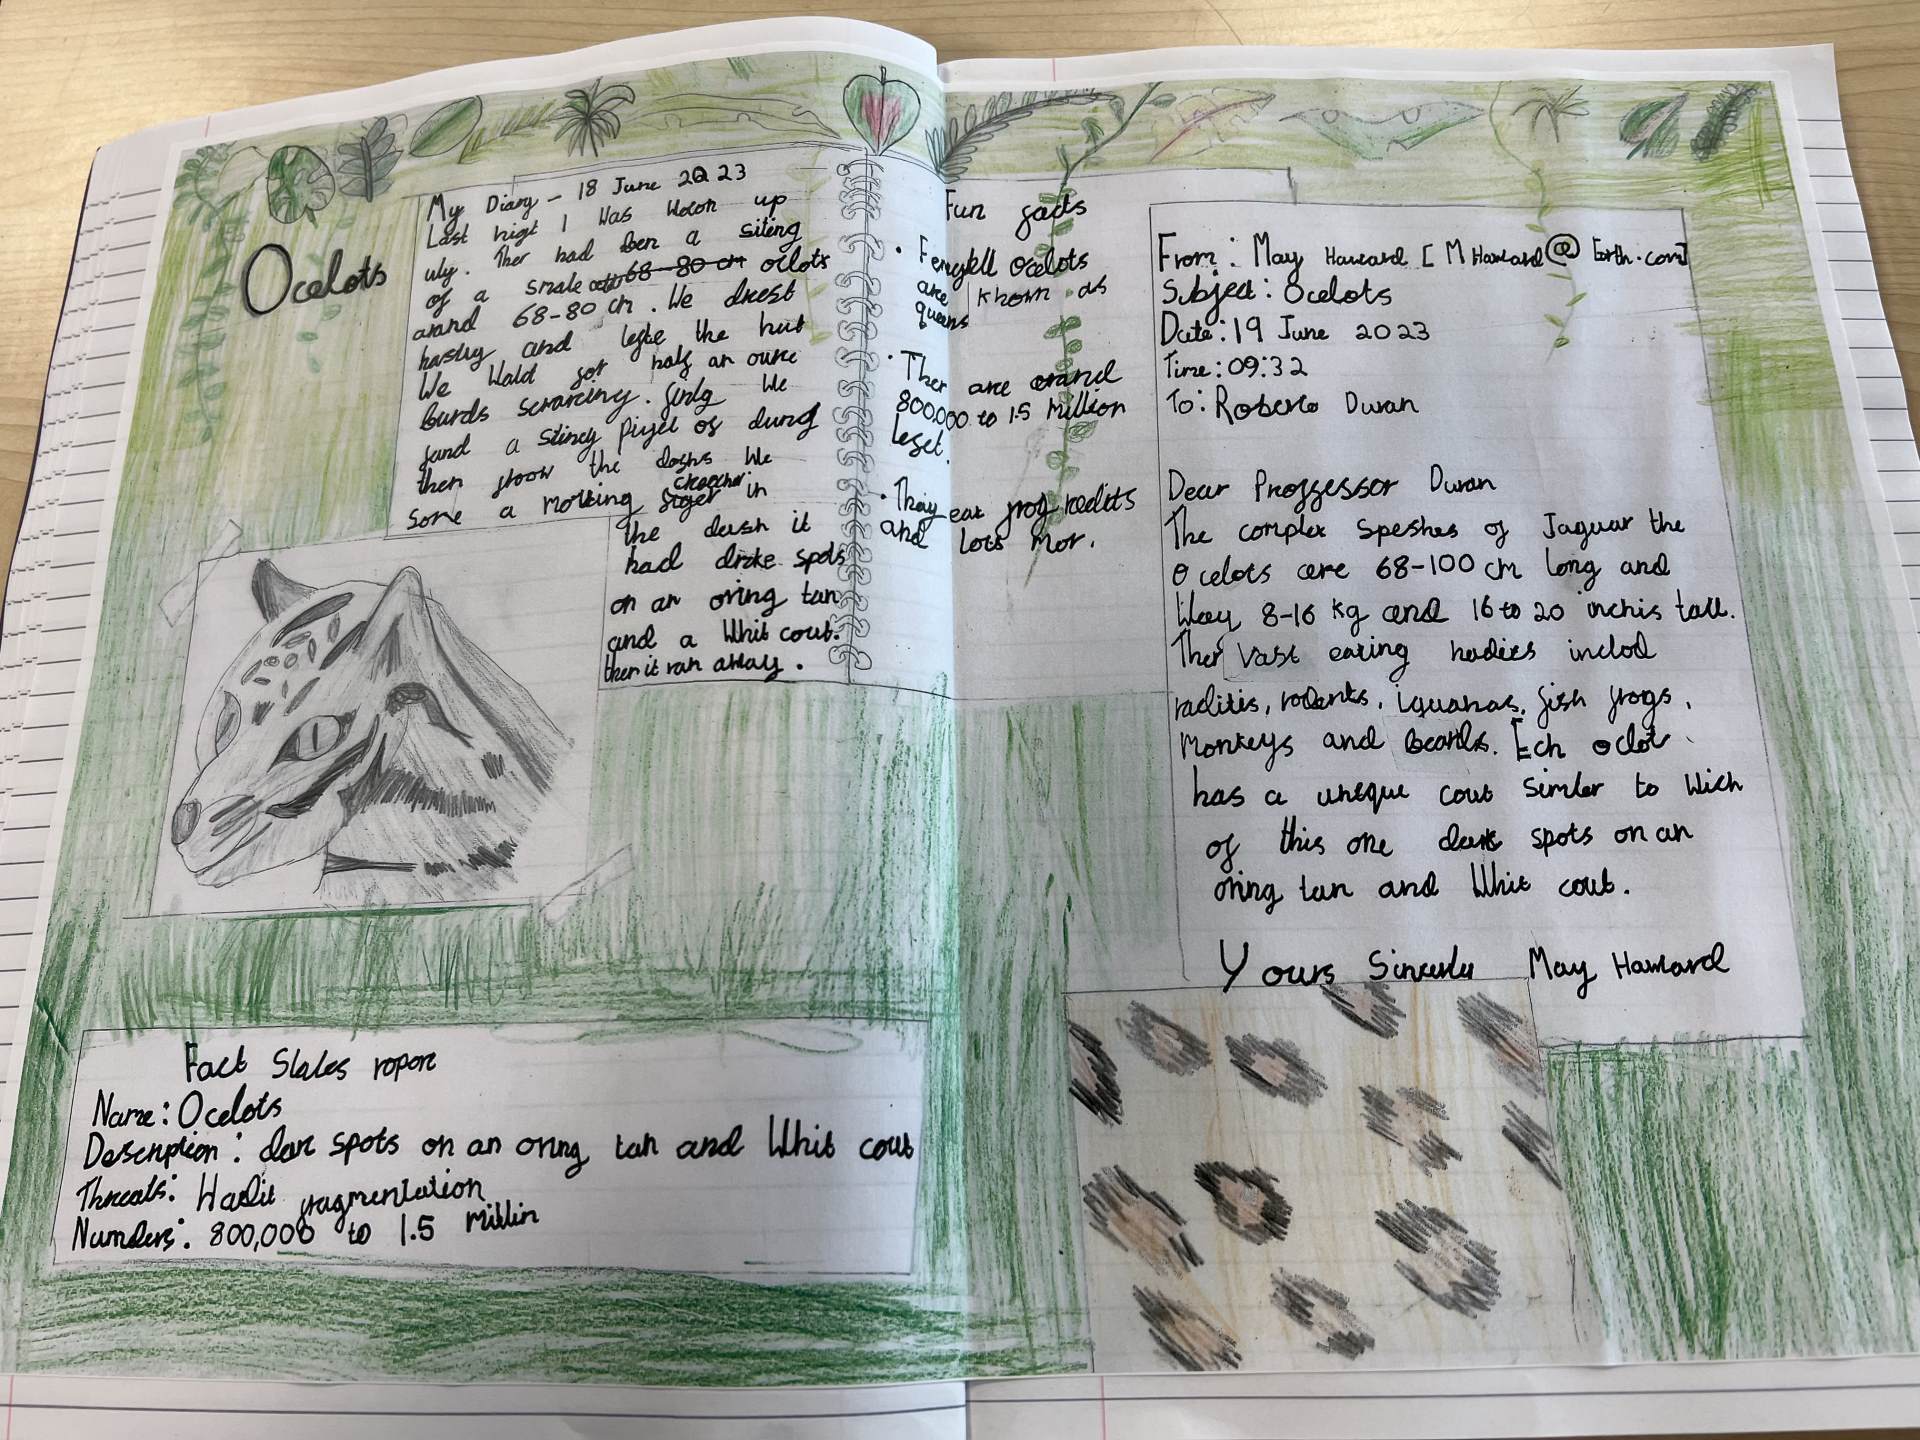 Ocelots
My Diary - 18 June 2023
Last higt I Was Wocon up
uly. Ther had ben a siting
of a smale 68-80 cm oclots
arand 68-80 cm. We drest
hasley and lefte the hut
We Wald for half an oure
Burds scrarcing. finlg We
fand a stincy piyel of dung
then froom the doshs We
Some a molting creecher in
the dush it
had drake spots
on an oring tan
and a Whit cout.
then it ran away.
Fun facts
• Femyell Ocelots
are Khown as
queens
• Ther are arand
800,000 to 1.5 Million
lefet.
• Thay eat frog redits
and lots mor.
From: May Haward [M Haward@Earth.com]
Subject: Ocelots
Date: 19 June 2023
Time: 09:32
To: Roberto Duran
Dear Proffessor Duran
The complex Speshes of Jaguar the
Ocelots are 68-100 cm long and
Way 8-16 kg and 16 to 20 inchis tall.
Ther Vast eating hadits inclod
raditis, rodents, iguanas, fish frogs,
Monkeys and Beards. Ech oclot
has a uneque cout Simler to Wich
of this one dark spots on an
oring tan and Whit cout.
Yours Sincerley May Haward
Fact Slales ropore
Name: Ocelots
Description: darc spots on an oring tan and Whit cout
Threats: Hadit fragmentation
Numders: 800,000 to 1.5 Millin